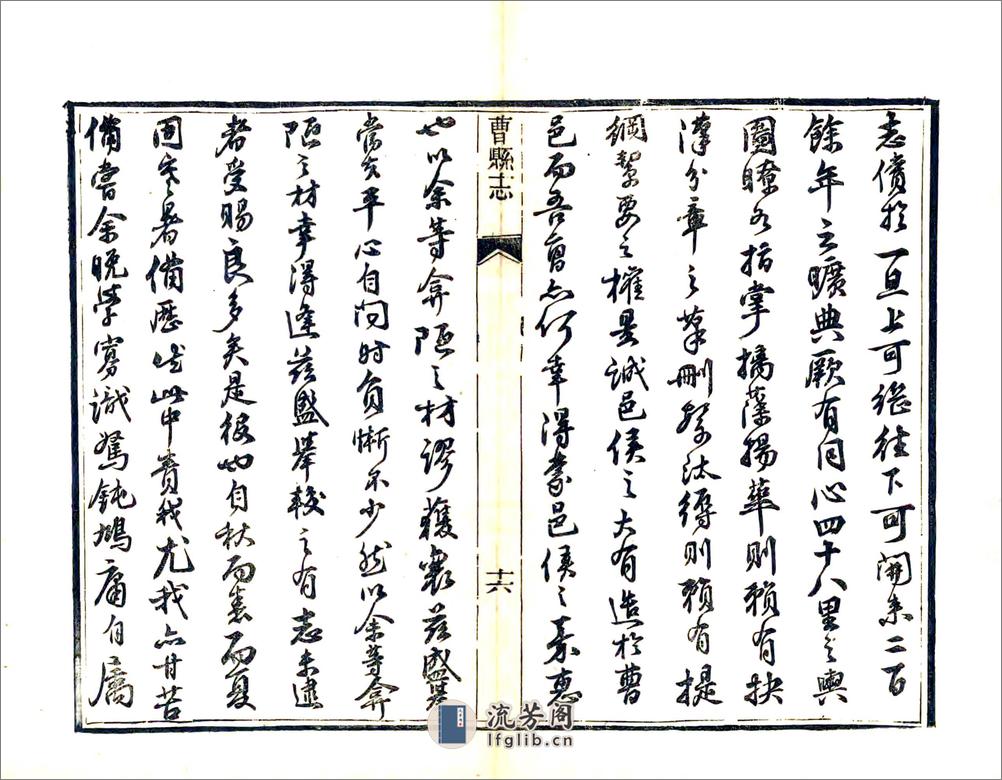 志債於一旦上可繼往下可開來二百
餘年之曠典厥有同心四十八里之輿
圖瞭如指掌摛藻揚華則賴有抉
漢分章之筆刪繁汰縟則賴有提
綱挈要之權是誠邑侯之大有造於曹
邑而吾曹亦何幸得蒙邑侯之嘉惠
曹縣志
十六
也以余等弇陋之材謬襄茲盛舉
嘗亥平心自问時負慚不少然以余等弇
陋之材幸得逢茲盛舉較之有志未逮
者受賜良多矣是役也自秋而春而夏
固寒暑備歷此中責我尤我亦甘苦
備嘗余晚學寡識駑鈍鳩庸自屬
流芳阁
lfglib.cn